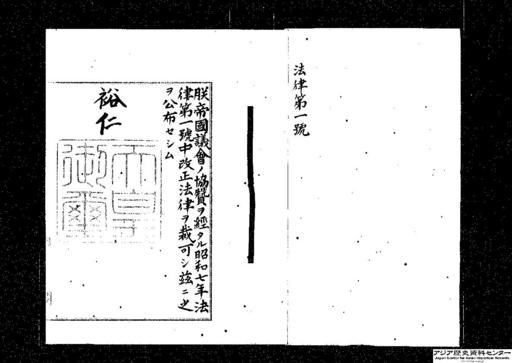 法律第一號
朕帝國議會ノ協賛ヲ經タル昭和七年法
律第一號中改正法律ヲ裁可シ茲ニ之
ヲ公布セシム
裕仁
天皇
御璽
アジア歴史資料センター
Japan Center for Asian Historical Records